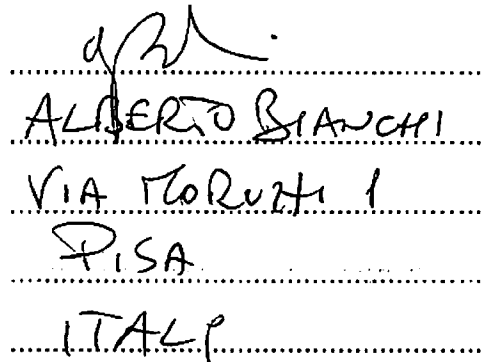 ALBERTO BIANCHI
VIA MORUZZI 1
PISA
ITALY